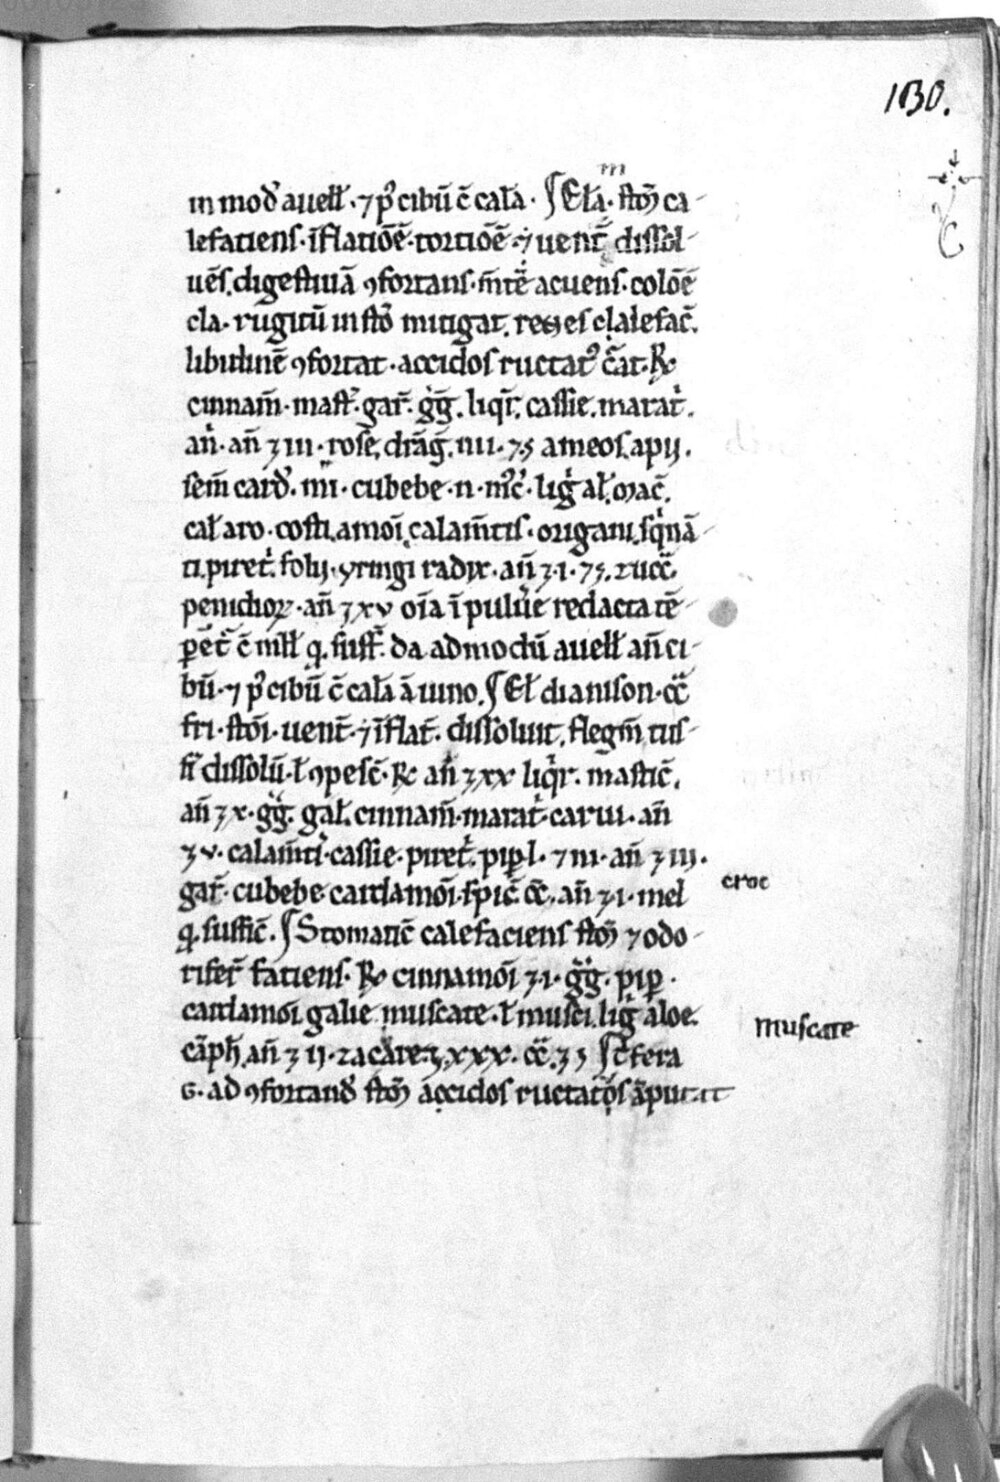 130.
in mod᷒ auell̃ · ⁊ p᷒ cibũ c̃ cal᷒a · ¶ El᷒a · stom̃ ca-
lefatiens · ĩflatiõẽ · tortiõẽ · ⁊ uent̃ dissol-
uẽs, digestiuã ꝯfortans · m̃tẽ acuens · colõẽ
cla · rugitũ in sto᷒ mitigat, calefac̃.
libidinẽ ꝯfortat · accidos ructat᷒ c̃at · ℞
cinnam̃ · mast̃ · gar̃ · gg̃ · liqr̃, cassie, marat̃.
añ · añ ʒ iii · rose, drãg̃, iiii · ⁊ s ameos, apij.
sem̃ card᷒ · cubebe · n · m᷒c᷒ · lig̃ al̃, mac̃.
cal̃ aro · costi, amoĩ, calam̃tis · origani, sq̃nã
ti, piret̃ folij · yringi radix · añ ʒ · i · ⁊ s, zucc̃
penidioꝝ · añ ʒ xv oĩa ĩ puluẽ redacta tẽ-
ꝑet̃ c̃ mll̃ q̃ · suff̃ · da ad modũ auell̃ añ ci-
bũ · ⁊ p᷒ cibũ c̃ cal᷒a ã iuno, ¶ El̃ dianison · cc̃
fri · stoĩ · uent̃ · ⁊ ĩflat̃ · dissoluit, flegm̃, tus-
si᷒ dissolũ · l̃ ꝯpesc̃ · ℞ añ ʒ xx liqr̃ · mastic̃.
añ ʒ x · gg̃ · gal̃ · cinnam̃ · marat̃ · carui · añ
ʒ v · calam̃ti · cassie · piret̃ · pip̱ l · ⁊ n · añ ʒ iij.
gar̃ · cubebe cardamoĩ · spic̃ · añ ʒ · i · mel
croc
q̃ · suffic̃ · ¶ Stomatic̃ calefaciens stom̃ ⁊ odo-
rifer̃ fatiens · ℞ cinnamoĩ ʒ · i · gg̃ · pip̱ ·
cardamoĩ, galie muscate · l̃ musci, lig̃ aloe.
muscate
cãph, añ ʒ ij · zacare, ʒ, xxx · cc̃ · ʒ s ¶ c̃fera
G · ad ꝯfortand᷒ stom̃ accidos ructat᷒os ãputat